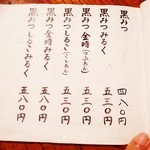 黒みつ 四八〇円
黒みつみるく 五三〇円
黒みつ金時（つぶあん） 五三〇円
黒みつしるこ（こしあん） 五三〇円
黒みつ金時みるく 五八〇円
黒みつしるこみるく 五八〇円